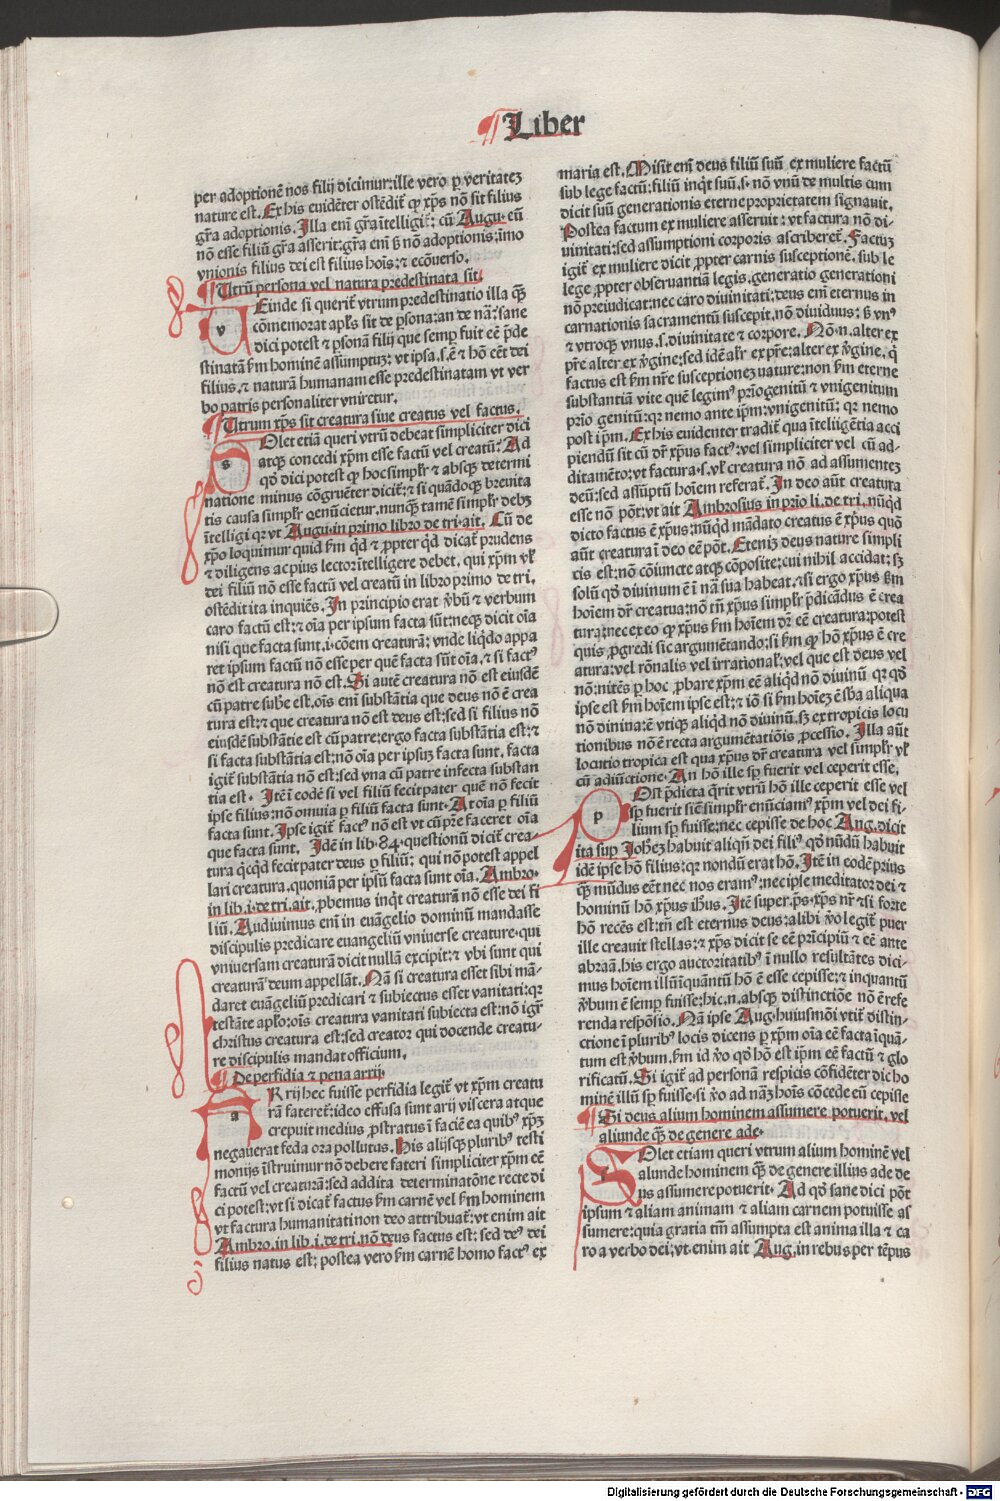 Liber
per adoptionē nos filij dicimur: ille vero ꝑ veritatez
nature est. Ex his euidēter ostēdit̄ ꝙ xp̄s nō sit filius
gr̄a adoptionis. Illa em̄ gr̄a ītelligit̄: cū Augu. eū
nō esse filiū gr̄a asserit: gr̄a em̄ s̄ nō adoptionis: īmo
vnionis filius dei est filius hoīs: ⁊ ecōuerso.
Utrū persona vel natura predestinata sit.
Einde si querit̄ vtrum predestinatio illa quā̄
cōmemorat apl̄s sit de ꝑsona: an de nā: sane
dici potest ⁊ ꝑsonā filij que semꝑ fuit eē p̄de
stinatā ẜm hominē assumptuz: vt ipsa .s. ē ⁊ hō eēt dei
filius. ⁊ naturā humanam esse predestinatam vt ver
bo patris personaliter vniretur.
Utrum xp̄s sit creatura siue creatus vel factus.
Olet etiā queri vtrū debeat simpliciter dici
atqꝫ concedi xp̄m esse factū vel creatū: Ad
qd̄ dici potest ꝙ hoc simpl̄r ⁊ absqꝫ determi
natione minus cōgruēter dicit̄: ⁊ si quādoqꝫ breuita
tis causa simpl̄r denūcietur. nunqꝫ tamē simpl̄r debz
ītelligi qr vt Augu. in primo libro de tri. ait. Cū de
xp̄o loquimur quid ẜm qd̄ ⁊ ꝓpter qd̄ dicat̄ prudens
⁊ diligens ac pius lector ītelligere debet. qui xp̄m vl̓
dei filiū nō esse factū vel creatū in libro primo de tri.
ostēdit ita inquiēs. In principio erat v̄bū ⁊ verbum
caro factū est: ⁊ oīa per ipsum facta sūt: neqꝫ dicit oīa
nisi que facta sunt .i. cōem creaturā: vnde liqdo appa
ret ipsum factū nō esse per quē facta sūt oīa. ⁊ si factꝰ
nō est creatura nō est. Si autē creatura nō est eiusdē
cū patre sub̄e est. oīs em̄ substātia que deus nō ē crea
tura est: ⁊ que creatura nō est deus est: sed si filius nō
eiusdē substātie est cū patre: ergo facta substātia est: ⁊
si facta substātia est: nō oīa per ipsuz facta sunt. facta
igit̄ substātia nō est: sed vna cū patre infecta substan
tia est. Itē ī eodē si vel filiū fecit pater quē nō fecit
ipse filius: nō omnia ꝑ filiū facta sunt. At oīa ꝑ filiū
facta sunt. Ipse igit̄ factꝰ nō est vt cū pr̄e faceret oīa
que facta sunt. Idē in lib. 84. questionū dicit̄ crea-
tura qcqd fecit pater deus ꝑ filiū: qui nō potest appel
lari creatura. quoniā per ipsū facta sunt oīa. Ambro.
in lib. i. de tri. ait. ꝓbemus inqt creaturā nō esse dei fi
liū. Audiuimus em̄ in euāgelio dominū mandasse
discipulis predicare euangeliū vniuerse creature. qui
vniuersam creaturā dicit nullā excipit: ⁊ vbi sunt qui
creaturā deum appellāt. Nā si creatura esset sibi mā-
daret euāgeliū predicari ⁊ subiectus esset vanitati: qr
testāte apl̄o: oīs creatura vanitati subiecta est: nō igr̄
christus creatura est: sed creator qui docende creatu-
re discipulis mandat officium.
De perfidia ⁊ pena arrij.
Rrij hec fuisse perfidia legit̄ vt xp̄m creatu
rā fateret̄: ideo effusa sunt arij viscera atque
crepuit medius ꝓstratus ī faciē ea quibꝰ xp̄z
negauerat feda ora pollutus. His alijsqꝫ pluribꝰ testi
monijs īstruimur nō debere fateri simpliciter xp̄m eē
factū vel creaturā: sed addita determinatōne recte di
ci potest: vt si dicat̄ factus ẜm carnē vel ẜm hominem
vt factura humanitati non deo attribuat̄: vt enim ait
Ambro. in lib. i. de tri. nō deus factus est: sed deꝰ dei
filius natus est: postea vero ẜm carnē homo factꝰ ex
maria est. Misit em̄ deus filiū suū ex muliere factū
sub lege factū: filiū inqt suū. s. nō vnū de multis cum
dicit suū generationis eterne proprietatem signauit.
Postea factum ex muliere asseruit: vt factura nō di-
uinitati: sed assumptioni corporis ascriberet̄. Factuz
igit̄ ex muliere dicit ꝓpter carnis susceptionē. sub le
lege ꝓpter obseruantiā legis. generatio generationi
nō preiudicat: nec caro diuinitati: deus em̄ eternus in
carnationis sacramentū suscepit. nō diuiduus: s̄ vnꝰ
⁊ vtroqꝫ vnus .s. diuinitate ⁊ corpore. Nō .n. alter ex
pr̄e alter ex v̄gine: sed idē al̓r ex pr̄e: alter ex v̄gine. q̄
factus est ẜm nr̄e susceptionez nature: non ẜm eterne
substantiā vite quē legimꝰ pri̓ogenitū ⁊ vnigenitum
prio genitū: qr nemo ante ip̄m: vnigenitū: qr nemo
post ip̄m. Ex his euidenter tradit̄ qua ītelligētia acci
piendū sit cū dr̄ xp̄us factꝰ: vel simpliciter vel cū ad-
ditamēto: vt factura .s. vl̓ creatura nō ad assumentez
deū: sed assūptū hoīem referat̄. In deo aūt creatura
esse nō pōt: vt ait Ambrosius in prio li. de tri. nūqd
dicto factus ē xp̄us: nūqd mādato creatus ē xp̄us quō
aūt creatura ī deo eē pōt. Etenī deus nature simpli
cis est: nō cōiuncte atqꝫ cōposite: cui nihil accidat: sꝫ
solū qd̄ diuinum ē ī nā sua habeat. ⁊ si ergo xp̄us ẜm
hoīem dr̄ creatua: nō tn̄ xp̄us simpl̄r p̄dicādus ē crea
tura: nec ex eo ꝙ xp̄us ẜm hoīem dr̄ eē creatura: potest
quis ꝓgredi sic argumētando: si ẜm ꝙ hō xp̄us ē cre
atura: vel rōnalis vel irrational̓: vel que est deus vel
nō: nitēs ꝑ hoc ꝓbare xp̄m eē aliqd nō diuinū qr qd̄
ipse est ẜm hoīem ipse est: ⁊ iō si ẜm hoīez ē sb̄a aliqua
nō diuina: ē vtiqꝫ aliqd nō diuinū. sꝫ ex tropicis locu
tionibus nō ē recta argumētatiōis ꝓcessio. Illa aūt
locutio tropica est qua xp̄us dr̄ creatura vel simpl̄r vl̓
cū adiūctione. An hō ille sp̄ fuerit vel ceperit esse.
Ost p̄dicta qrit̄ vtrū hō ille ceperit esse vel
sp̄ fuerit sic̄ simpl̄r enūciamꝰ xp̄m vel dei fi-
lium sp̄ fuisse: nec cepisse de hoc Aug. dicit
ita suꝑ Joh̄ez habuit aliqn̄ dei filiꝰ qd̄ nūdū habuit
idē ipse hō filius: qr nondū erat hō. Itē in eodē prius
qꝫ mūdus eēt nec nos eramꝰ: nec ipse meditator dei ⁊
hominū hō xp̄us ih̄us. Itē super. p̄s. xp̄s nr̄ ⁊ si forte
hō recēs est: tn̄ est eternus deus: alibi v̄o legit̄ puer
ille creauit stellas: ⁊ xp̄s dicit se eē pri̓cipiū ⁊ eē ante
abraā. his ergo auctoritatibꝰ ī nullo resultātes dici-
mus hoīem illū īquātū hō ē esse cepisse: ⁊ inquantū
v̄bum ē semꝑ fuisse: hic .n. absqꝫ distinctiōe nō ē refe
renda respōsio. Nā ipse Aug. huiusmōi vtit̄ distin-
ctione ī pluribꝰ locis dicens ꝑ xp̄m oīa eē facta īquā-
tum est v̄bum. ẜm id v̄o qd̄ hō est ip̄m eē factū ⁊ glo
rificatū. Si igit̄ ad personā respicis cōfidēter dic ho
minē illū sp̄ fuisse: si v̄o ad nāꝫ hoīs cōcede eū cepisse
Si deus alium hominem assumere potuerit. vel
aliunde qꝫ de genere ade.
Olet etiam queri vtrum alium hominē vel
alunde hominem qꝫ de genere illius ade de
us assumere potuerit. Ad qd̄ sane dici pōt
ipsum ⁊ aliam animam ⁊ aliam carnem potuisse as
sumere: quia gratia tm̄ assumpta est anima illa ⁊ ca
ro a verbo dei: vt enim ait Aug. in rebus per tēpus
Digitalisierung gefördert durch die Deutsche Forschungsgemeinschaft - DFG